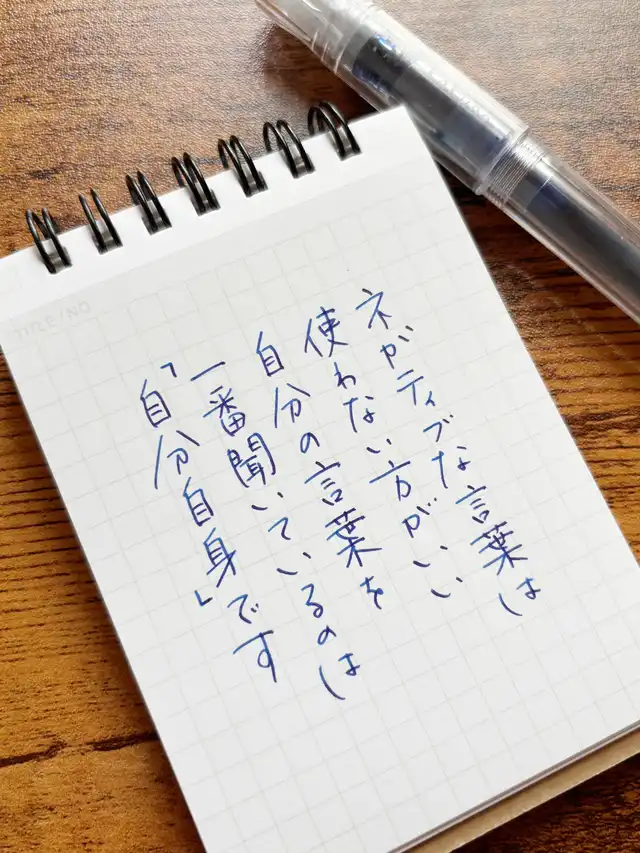 TITLE/NO
ネガティブな言葉は
使わない方がいい
自分の言葉を
一番聞いているのは
「自分自身」です